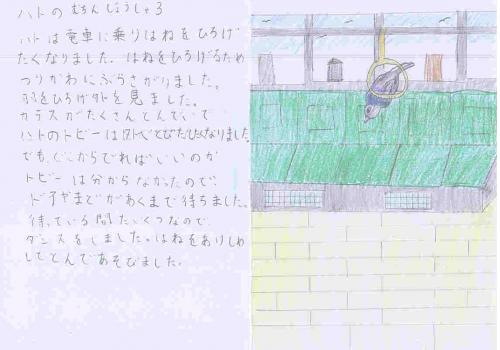 ハトの むちんじょうしゃ3
ハトは電車に乗りはねをひろげ
たくなりました。はねをひろげるため
つりかわにぶらさがりました。
羽をひろげ外を見ました。
カラスがたくさんとんでいて
ハトのトビーは とびたくなりました。
でも、どこからでればいいのか
トビーは分からなかったので、
ドアやまどがあくまで待ちました。
待っている間たいくつなので
ダンスをしました。はねをありしめ
してとんであそびました。